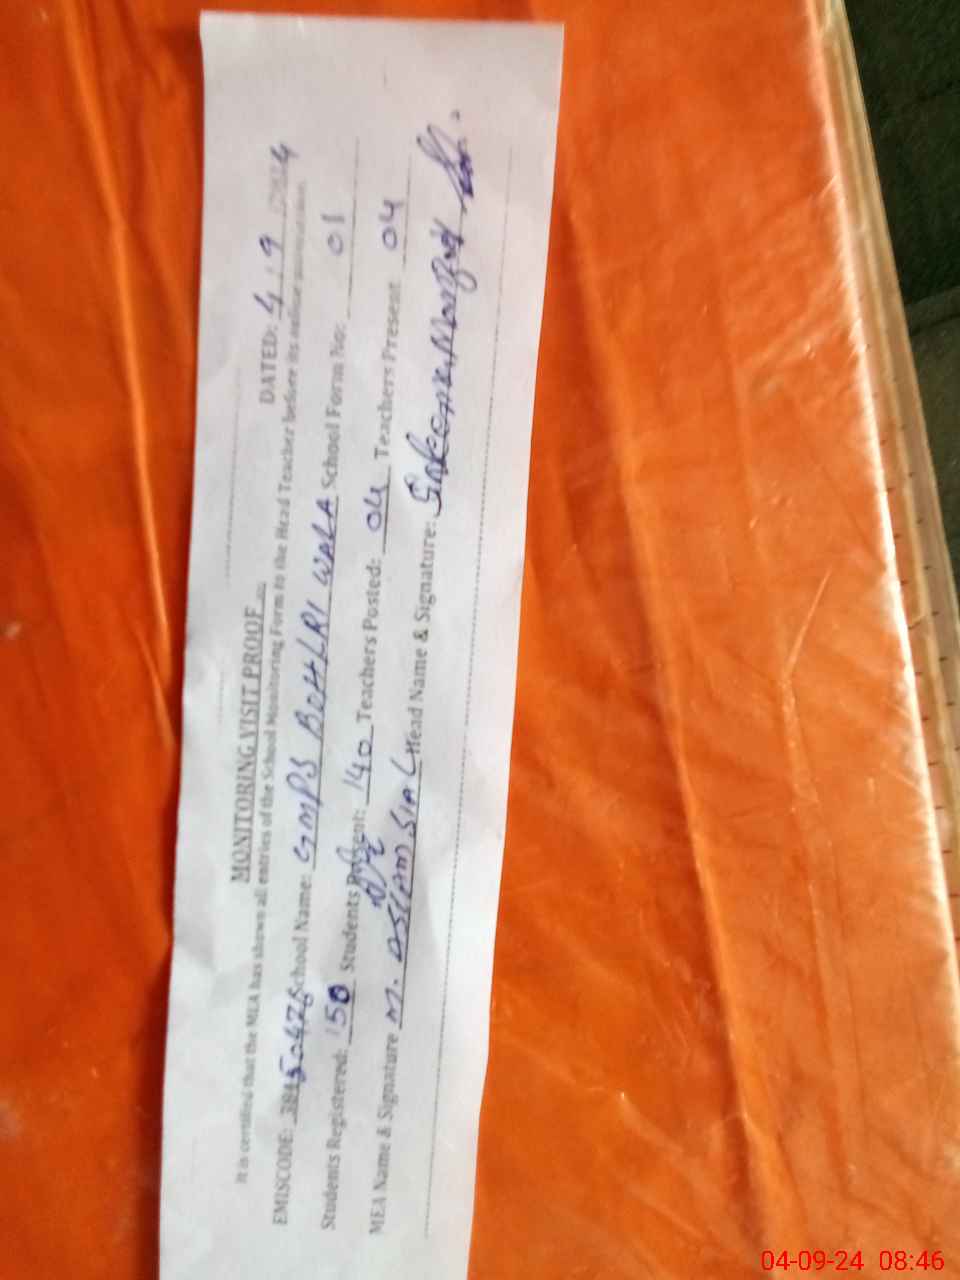 MONITORING VISIT PROOF
DATED: 4 : 9 2024
It is certified that the MEA has shown all entries of the School Monitoring Form to the Head Teacher before its online
EMISCODE: School Name: GMPS BOHLRI WALA School Form No: 01
Students Registered: 150 Students Present: 140 Teachers Posted: 04 Teachers Present 04
MEA Name & Signature M. ASLAM SIAL Head Name & Signature:
04-09-24 08:46